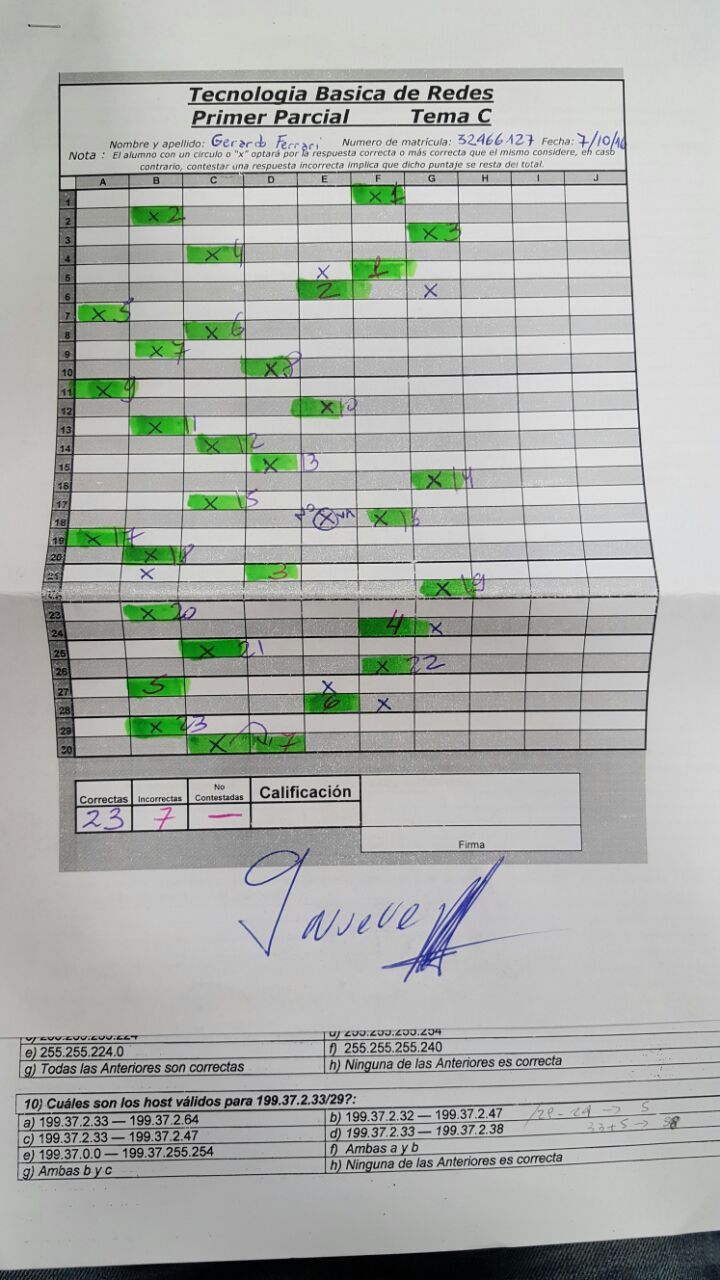 Tecnologia Basica de Redes
Primer Parcial Tema C
Nombre y apellido: Gerardo Ferrari Numero de matrícula: 32466127 Fecha: 7/10/16
Nota : El alumno con un circulo o "x" optará por la respuesta correcta o más correcta que el mismo considere, en caso
contrario, contestar una respuesta incorrecta implica que dicho puntaje se resta del total.
A B C D E F G H I J
1 x 1
2 x 2
3 x 3
4 x 4
5 x 1
6 2 x
7 x 5
8 x 6
9 x 7
10 x 8
11 x 9
12 x 10
13 x 11
14 x 12
15 x 13
16 x 14
17 x 15
18 x x 16
19 x 17
20 x 18
21 x 3
22 x 19
23 x 20
24 4 x
25 x 21
26 x 22
27 5 x
28 6 x
29 x 23
30 x 7
Correctas Incorrectas No Contestadas Calificación
23 7 —
Firma
9 nueve
e) 255.255.224.0 f) 255.255.255.240
g) Todas las Anteriores son correctas h) Ninguna de las Anteriores es correcta
10) Cuáles son los host válidos para 199.37.2.33/29?:
a) 199.37.2.33 — 199.37.2.64 b) 199.37.2.32 — 199.37.2.47
c) 199.37.2.33 — 199.37.2.47 d) 199.37.2.33 — 199.37.2.38
e) 199.37.0.0 — 199.37.255.254 f) Ambas a y b
g) Ambas b y c h) Ninguna de las Anteriores es correcta